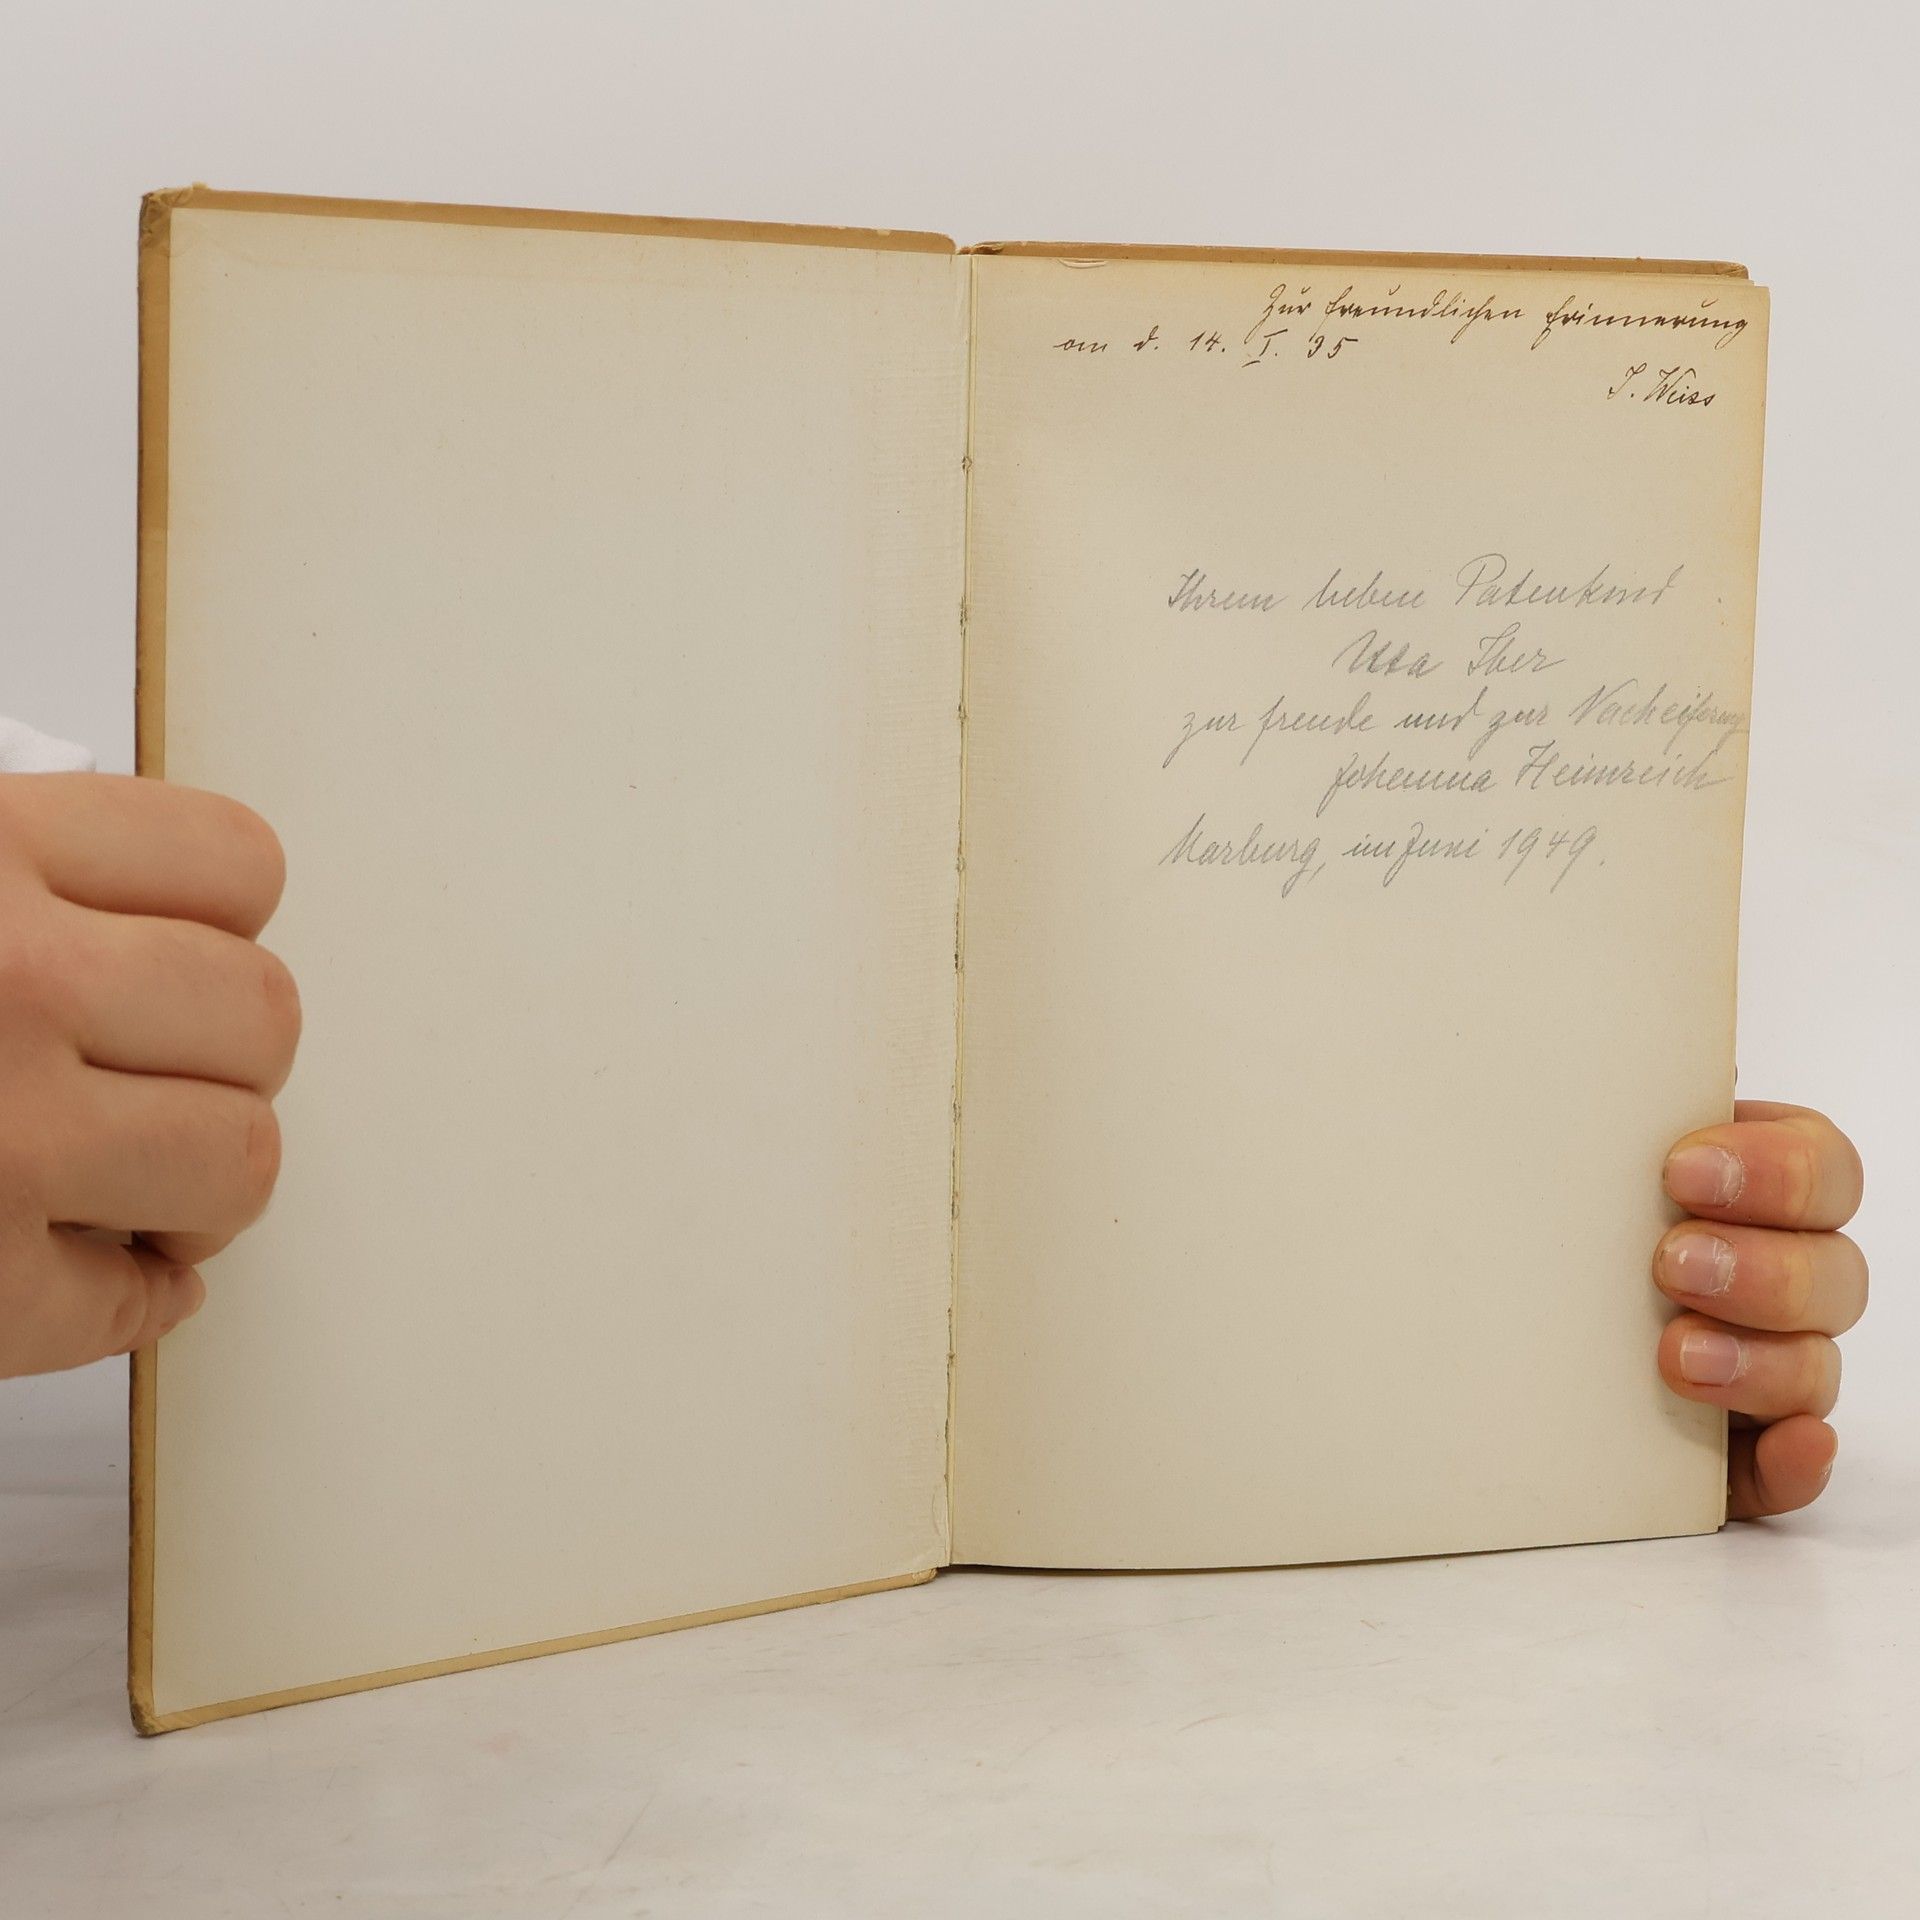 Zur freundlichen Erinnerung
an d. 14. I. 35
J. Weiss
Ihrem lieben Patenkind
Uta Iber
zur Freude und zur Nacheiferung
Johanna Heimreich
Marburg, im Juni 1949.